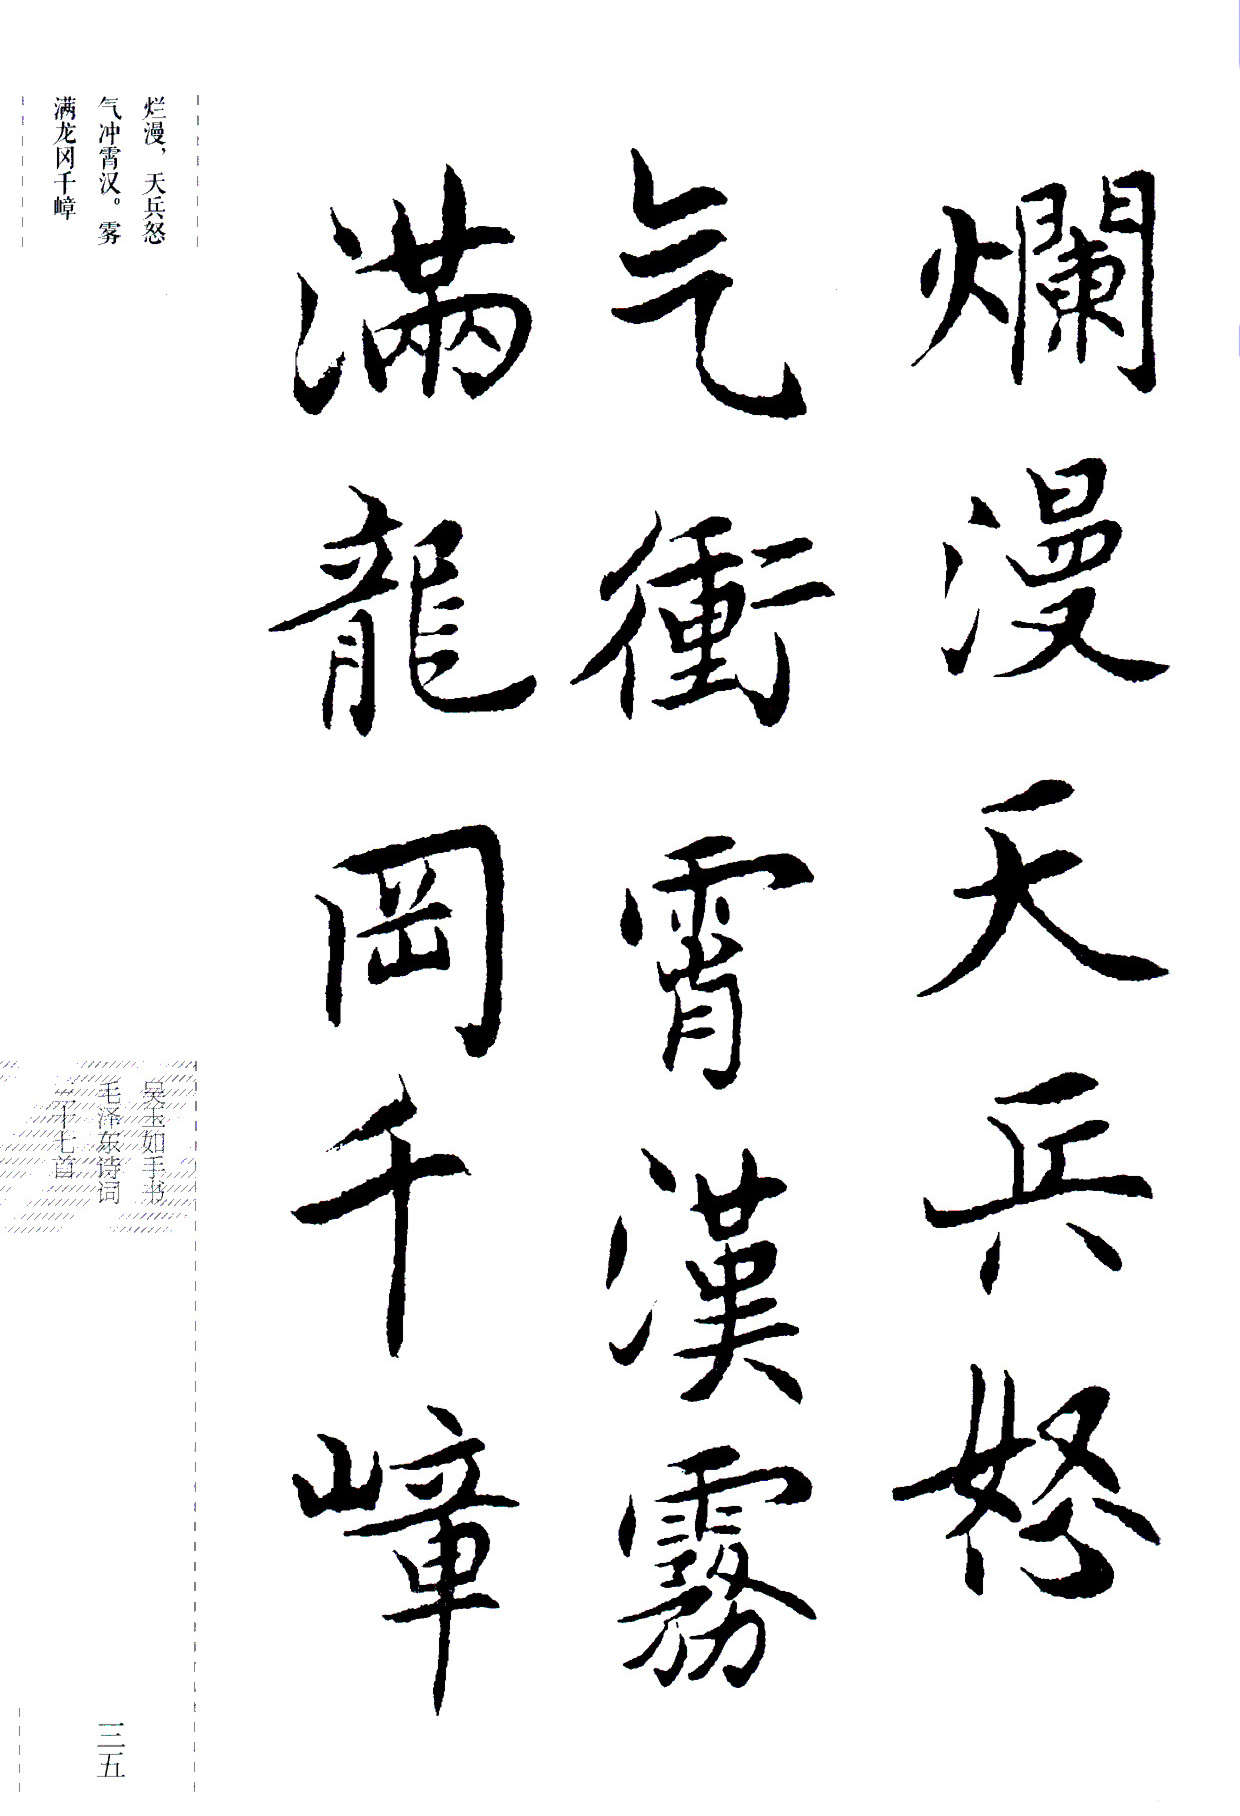 爛漫天兵怒
气衝霄漢霧
滿龍岡千嶂
烂漫，天兵怒
气冲霄汉。雾
满龙冈千嶂
吴玉如手书
毛泽东诗词
三十七首
三五